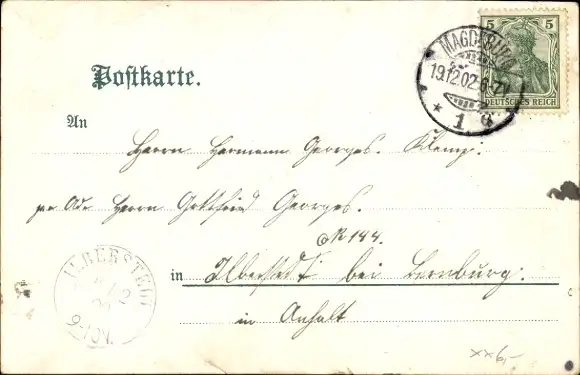 5 5
DEUTSCHES REICH
MAGDEBURG
19.12.02. 6-7
* 1 *
Postkarte.
An
Herrn Hermann Georges. Klemp.
per Adr. Herrn Gottfried Georges.
№ 144.
in Ilberstedt bei Bernburg.
in Anhalt
ILBERSTEDT
9-10V.
xx6,-